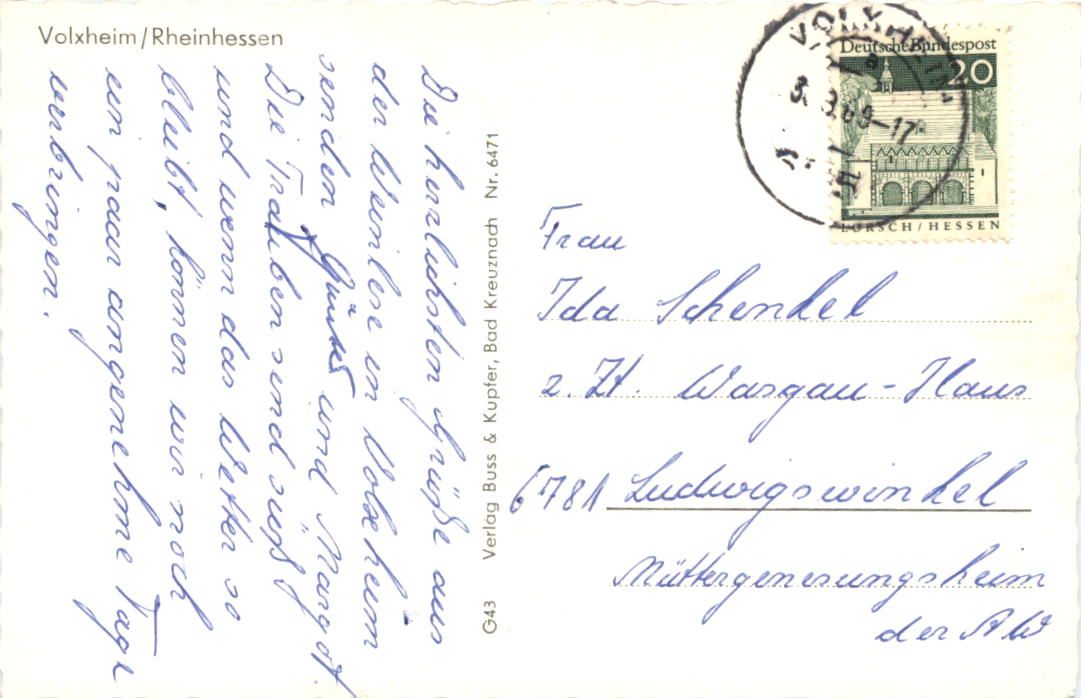 Volxheim/Rheinhessen
Die herzlichsten Grüße aus
der Weinlese in Volxheim
senden Günter und Margot.
Die Trauben sind süß
und wenn das Wetter so
bleibt, können wir noch
ein paar angenehme Tage
verbringen.
G43 Verlag Buss & Kupfer, Bad Kreuznach Nr. 6471
VOLXHEIM
69-17
Deutsche Bundespost
20
LORSCH/HESSEN
Frau
Ida Schenkel
z. Zt. Wasgau-Haus
6781 Ludwigswinkel
Müttergenesungsheim
der AW